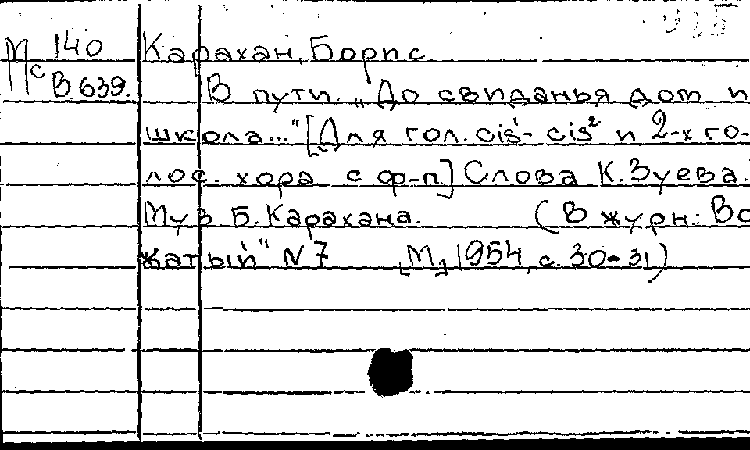 Мс 140 Карахан, Борис
В 639. В пути. „До свиданья дом и
школа..." [Для гол. cis¹- cis² и 2-х го-
лос. хора с ф-п.] Слова К. Зуева.
Муз Б. Карахана. (В журн: Во
жатый" N 7 [М.] 1954, с. 30-31)